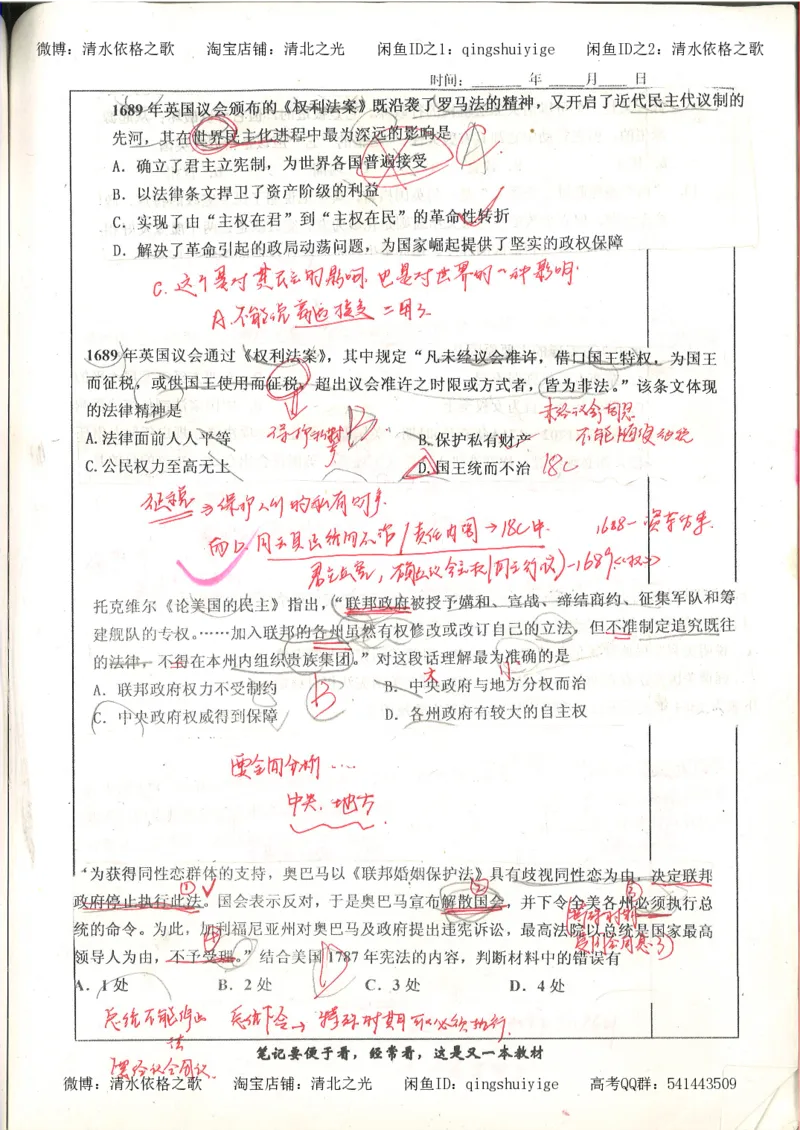 微博：清水依格之歌 淘宝店铺：清北之光 闲鱼ID之1：qingshuiyige 闲鱼ID之2：清水依格之歌
时间：______ 年 ____月____ 日
1689年英国议会颁布的《权利法案》既沿袭了罗马法的精神，又开启了近代民主代议制的
先河，其在世界民主化进程中最为深远的影响是
A．确立了君主立宪制，为世界各国普遍接受
B．以法律条文捍卫了资产阶级的利益
C．实现了由“主权在君”到“主权在民”的革命性转折
D．解决了革命引起的政局动荡问题，为国家崛起提供了坚实的政权保障
C.这个是对英民主的影响.也是对世界的一种影响.
A.不能说普遍接受
1689年英国议会通过《权利法案》，其中规定“凡未经议会准许，借口国王特权，为国王
而征税，或供国王使用而征税，超出议会准许之时限或方式者，皆为非法。”该条文体现
的法律精神是
未经议会同意
A.法律面前人人平等 B.保护私有财产 不能随便征税
C.公民权力至高无上 D.国王统而不治 18C
征税⇒保护人们的私有财产.
而D.国王具已统而不治/责任内阁→18C中.
君主立宪，确立议会主权 -1689《权》
托克维尔《论美国的民主》指出，“联邦政府被授予媾和、宣战、缔结商约、征集军队和筹
建舰队的专权。……加入联邦的各州虽然有权修改或改订自己的立法，但不准制定追究既往
的法律，不得在本州内组织贵族集团。”对这段话理解最为准确的是
A．联邦政府权力不受制约 B．中央政府与地方分权而治
B
C．中央政府权威得到保障 D．各州政府有较大的自主权
要全面分析....
中央、地方.
“为获得同性恋群体的支持，奥巴马以《联邦婚姻保护法》具有歧视同性恋为由，决定联邦
政府停止执行此法。国会表示反对，于是奥巴马宣布解散国会，并下令全美各州必须执行总
统的命令。为此，加利福尼亚州对奥巴马及政府提出违宪诉讼，最高法院以总统是国家最高
领导人为由，不予受理。”结合美国1787年宪法的内容，判断材料中的错误有
A．1处 B．2处 C．3处 D．4处
D
总统不能停止 总统下令→特殊时期可以必须执行.
法
要经议会同议.
笔记要便于看，经常看，这是又一本教材
微博：清水依格之歌 淘宝店铺：清北之光 闲鱼ID之1：qingshuiyige 高考QQ群：541443509